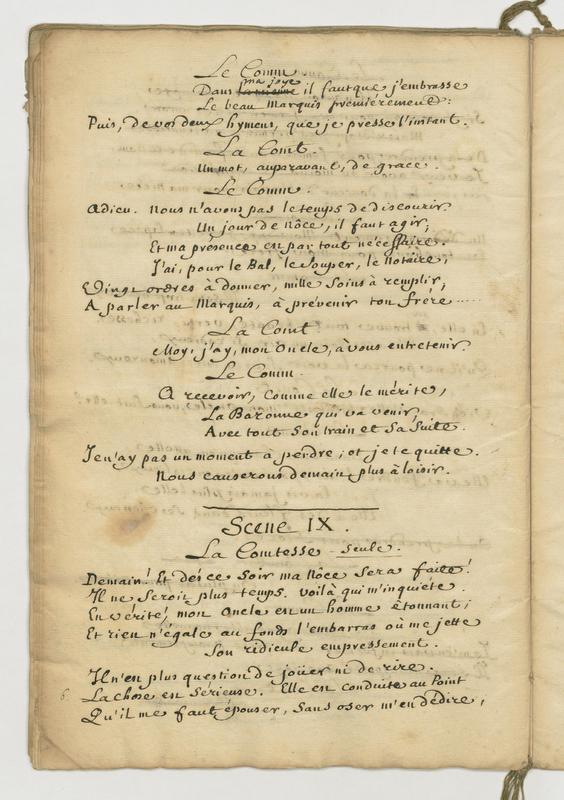 Le Comm
ma joye
Dans il faut que j'embrasse
Le beau Marquis premiérement :
Puis, de vos deux hymens, que je presse l'instant.
La Comt.
Un mot, auparavant, de grace.
Le Comm.
Adieu. Nous n'avons pas le temps de discourir.
Un jour de Nôce, il faut agir;
Et ma présence est par tout nécessaire.
J'ai, pour le Bal, le Souper, le Notaire,
Vingt ordres à donner, mille Soins à remplir;
A parler au Marquis, à prévenir ton frere .....
La Comt
Moy, j'ay, mon Oncle, à vous entretenir.
Le Comm.
A recevoir, comme elle le mérite,
La Baronne qui va venir,
Avec tout Son train et Sa Suite.
Je n'ay pas un moment à perdre; et je te quitte.
Nous causerons demain plus à loisir.
Scene IX.
La Comtesse Seule.
Demain! Et dès ce Soir ma Nôce Sera faite!
Il ne Seroit plus temps. Voilà qui m'inquiéte.
En vérité, mon Oncle est un homme étonnant;
Et rien n'égale au fonds l'embarras où me jette
Son ridicule empressement.
Il n'est plus question de joüer ni de rire.
6. La chose est Serieuse. Elle est conduite au Point
Qu'il me faut épouser, Sans oser m'en dédire;